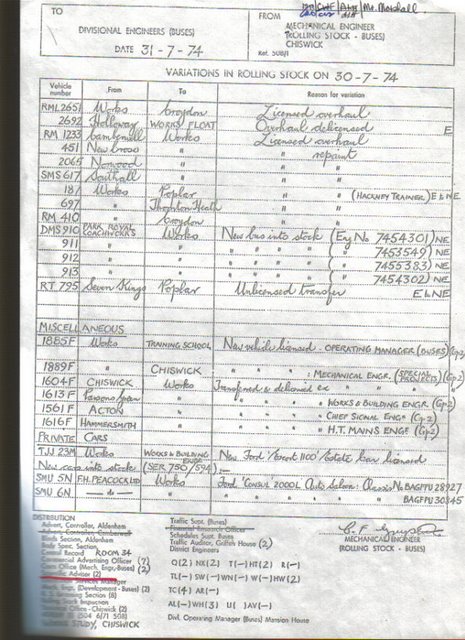 TO
FROM
DIVISIONAL ENGINEERS (BUSES)
DATE 31-7-74
MECHANICAL ENGINEER
(ROLLING STOCK - BUSES)
CHISWICK
Ref. 508/1
VARIATIONS IN ROLLING STOCK ON 30-7-74
Vehicle number From To Reason for variation
RML 2651 Works Croydon Licensed overhaul
2692 Holloway WORKS FLOAT Overhaul delicensed E
RM 1233 Camberwell Works Licensed overhaul
451 New Cross " " repaint
2065 Norwood " " "
SMS 617 Southall " " "
187 Works Poplar " " (HACKNEY TRAINER) E & NE
697 " Thornton Heath " "
RM 410 " Croydon " "
DMS 910 PARK ROYAL COACHWORKS Works New bus into stock (Eng No 7454301) NE
911 " " " " " " ( " 7453549) NE
912 " " " " " " ( " 7455383) NE
913 " " " " " " ( " 7454302) NE
RT 795 Seven Kings Poplar Unlicensed transfer E & NE
MISCELLANEOUS
1885F Works TRAINING SCHOOL New vehicle licensed: OPERATING MANAGER (BUSES) (Gp2)
1889F " CHISWICK " " " : MECHANICAL ENGR. (SPECIAL PROJECTS) (Gp2)
1604F CHISWICK Works Transferred & delicensed ex " " "
1613F Parsons Green " " " " WORKS & BUILDING ENGR. (Gp2)
1561F ACTON " " " " CHIEF SIGNAL ENGR (Gp2)
1616F HAMMERSMITH " " " " H.T. MAINS ENGR (Gp2)
PRIVATE CARS
TJJ 23M Works WORKS & BUILDING ENGR New Ford 'Escort 1100' Estate car licensed
New cars into stock (SER 750/594) :-
SMU 5N F.H. PEACOCK LTD Works Ford 'Consul 2000L' Auto Saloon: Chassis No BAGFPU 28927
SMU 6N - do - " " " " BAGFPU 30345
DISTRIBUTION
Advert. Controller, Aldenham
Advert. Controller Camberwell
Blinds Section, Aldenham
Body Spec. Section
Central Record ROOM 34
Commercial Advertising Officer (7)
(Mech. Engr-Buses) (2)
Advisor (2)
Services Manager
Engr. (Development - Buses) (2)
Section (8)
Rolling Stock Inspectors
Office - Chiswick (2)
STUDY, CHISWICK
Traffic Supt. (Buses)
Financial Research Officer
Schedules Supt. Buses
Traffic Auditor, Griffith House (2)
District Engineers
Q(2) NX(2) T(-) HT(2) R(-)
TL(-) SW(-) WN(-) W(-) HW(2)
TC(4) AR(-)
AL(-) WH(3) U( ) AV(-)
Divl. Operating Manager (Buses) Mansion House
MECHANICAL ENGINEER
(ROLLING STOCK - BUSES)